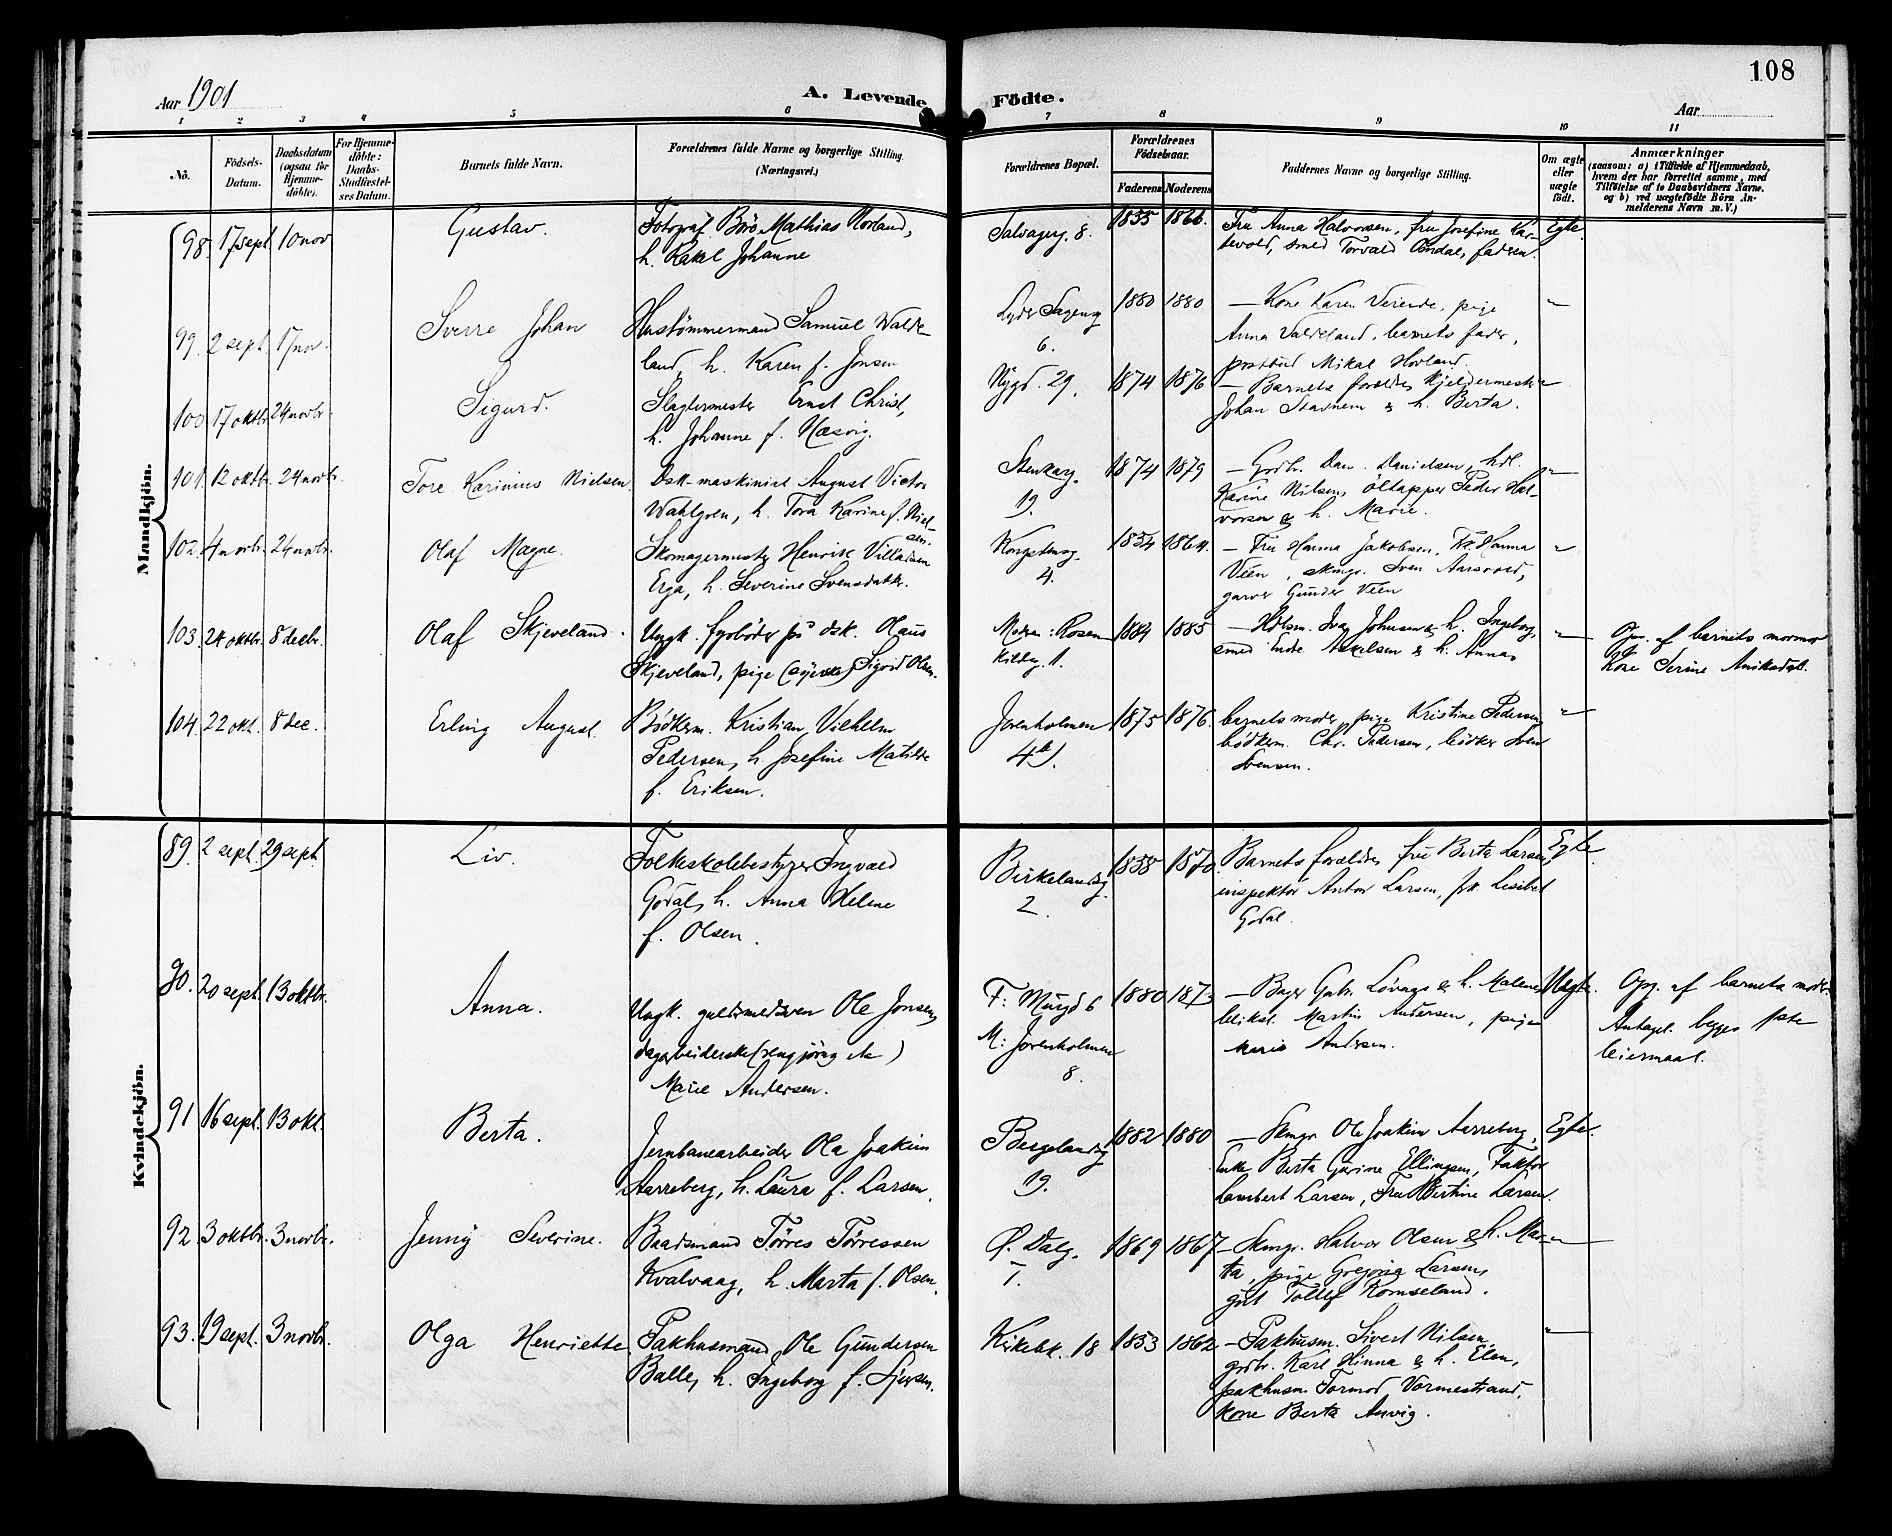 108
Aar 1901
A. Levende Födte.
Aar
1 2 3 4 5 6 7 8 9 10 11
No.
Födsels-Datum.
Daabsdatum (ogsaa för Hjemmedöbte).
For Hjemmedöbte: Daabs-Stadfæstelses Datum.
Barnets fulde Navn.
Forældrenes fulde Navne og borgerlige Stilling. (Næringsvei.)
Forældrenes Bopæl.
Forældrenes Födselsaar.
Faderens Moderens
Faddernes Navne og borgerlige Stilling.
Om ægte eller uægte födt.
Anmærkninger
(saasom: a) i Tilfælde af Hjemmedaab,
hvem der har forrettet samme, med
Tilföielse af to Daabsvidners Navne.
og b) ved uægtefödte Börn An-
melderens Navn m. V.)
Mandkjön.
98. 17 sept 10 nov Gustav.
Fotograf Mathias Norland,
h. Rakel Johanne
8. 1855 1866.
Fru Anna Halvorsen, fru Josefine
smed Torvald faderen.
Egte.
99. 2 sept 17 nov. Sverre Johan
Hustömmermand Samuel Walde-
land, h. Karen f. Jonsen
Lyder Sagensg
6.
1880 1880
— Kone Karen pige
Anna Valdeland, barnets fader,
postbud Mikal Hovland.
"
100. 17 oktbr. 24 novbr. Sigurd.
Slagtermester Ernst Christ,
h. Johanne f. Næsvig.
Nygd. 29. 1874 1876
— Barnets forældre
Johan Stavnem & h. Berta.
101. 12 oktbr. 24 novbr. Tore Karinius Nielsen
Dsk-maskinist August Victor
Wahlgren, h. Tora Karine f. Niel-
sen.
Stenkarg.
19.
1874 1879
— Gdbr. Dan. Danielsen, hdl.
Karine Nilsen, öltapper Peder Hal-
vorsen & h. Marie.
"
102. 4 novbr. 24 novbr. Olaf Magne.
Skomagermester Henrik Villadsen
Erga, h. Severine Svensdatter.
Kongstensg.
4.
1854 1864.
— Fru Hanna Jakobsen, Hanna
Veen, skmgr. Sven
garver Gunder Veen
"
103. 24 oktbr. 8 decbr. Olaf Skjeveland.
Ungk. fyrböder på dsk. Olaus
Skjeveland, pige (syerske) Sigrid Olsen.
Moren: Rosen
kildeg. 1.
1884 1885
— Hdlsm. Ivar Johnsen & h. Ingeborg,
smed Endre & h. Anna,
"
Opg. af barnets mormor
Kone Serine
104. 22 okt. 8 dec. Erling August.
Bödkerm. Kristian Vilhelm
Pedersen, h Josefine Matilde
f. Eriksen.
Jorenholmen
1875 1876.
barnets moder, pige Kristine Pedersen,
bödkerm. Chr. Pedersen, bödker Sven
Svensen.
"
Kvindekjön.
89. 2 sept. 29 sept. Liv.
Folkeskolebestyrer Ingvald
Godal, h. Anna Helene
f. Olsen.
Birkelandsg
2.
1858 1870
Barnets forældre, fru Berta Larsen,
inspektör Anton Larsen, frk Lisibet
Godal.
Egte
90. 20 sept. 13 oktbr. Anna.
Ungk. guldsmedsven Ole Jonsen,
dagarbeiderske (rengjöring etc)
Marie Andersen.
F: Murgd 6
M: Jorenholmen
8.
1880 1873
— Bager Gabr. & h. Malene,
bliksl. Martin Andersen, pige
Marie Andersen.
Uegte.
Opg. af barnets moder.
Antagel. begges 1ste
leiermaal.
91 16 sept. 13 okt. Berta.
Jernbanearbeider Ole Joakim
Aarreberg, h. Laura f. Larsen.
Bergelandsg
19.
1882 1880
— Skmgr Ole Joakim Aarreberg,
Enke Berta Gurine Ellingsen, Faktor
Lambert Larsen, Fru Bertine Larsen.
Egte.
92 3 oktbr. 3 novbr. Jenny Severine.
Baadsmand Törres Törressen
Kvalvaag, h. Marta f. Olsen.
Ø. Dalg.
1869 1867
— Skmgr. Halvor Olsen & h. Mar-
ta, pige Gregoria Larsen,
gut Tollef Komseland.
"
93. 19 sept. 3 novbr. Olga Henriette
Pakhusmand Ole Gundersen
Balle, h. Ingeborg f.
Kirkebk. 18 1853 1862
— Pakhusm. Sivert Nilsen,
gdbr. Karl Hinna & h. Elen,
pakhusm Tormod Vormestrand,
kone Berta
"